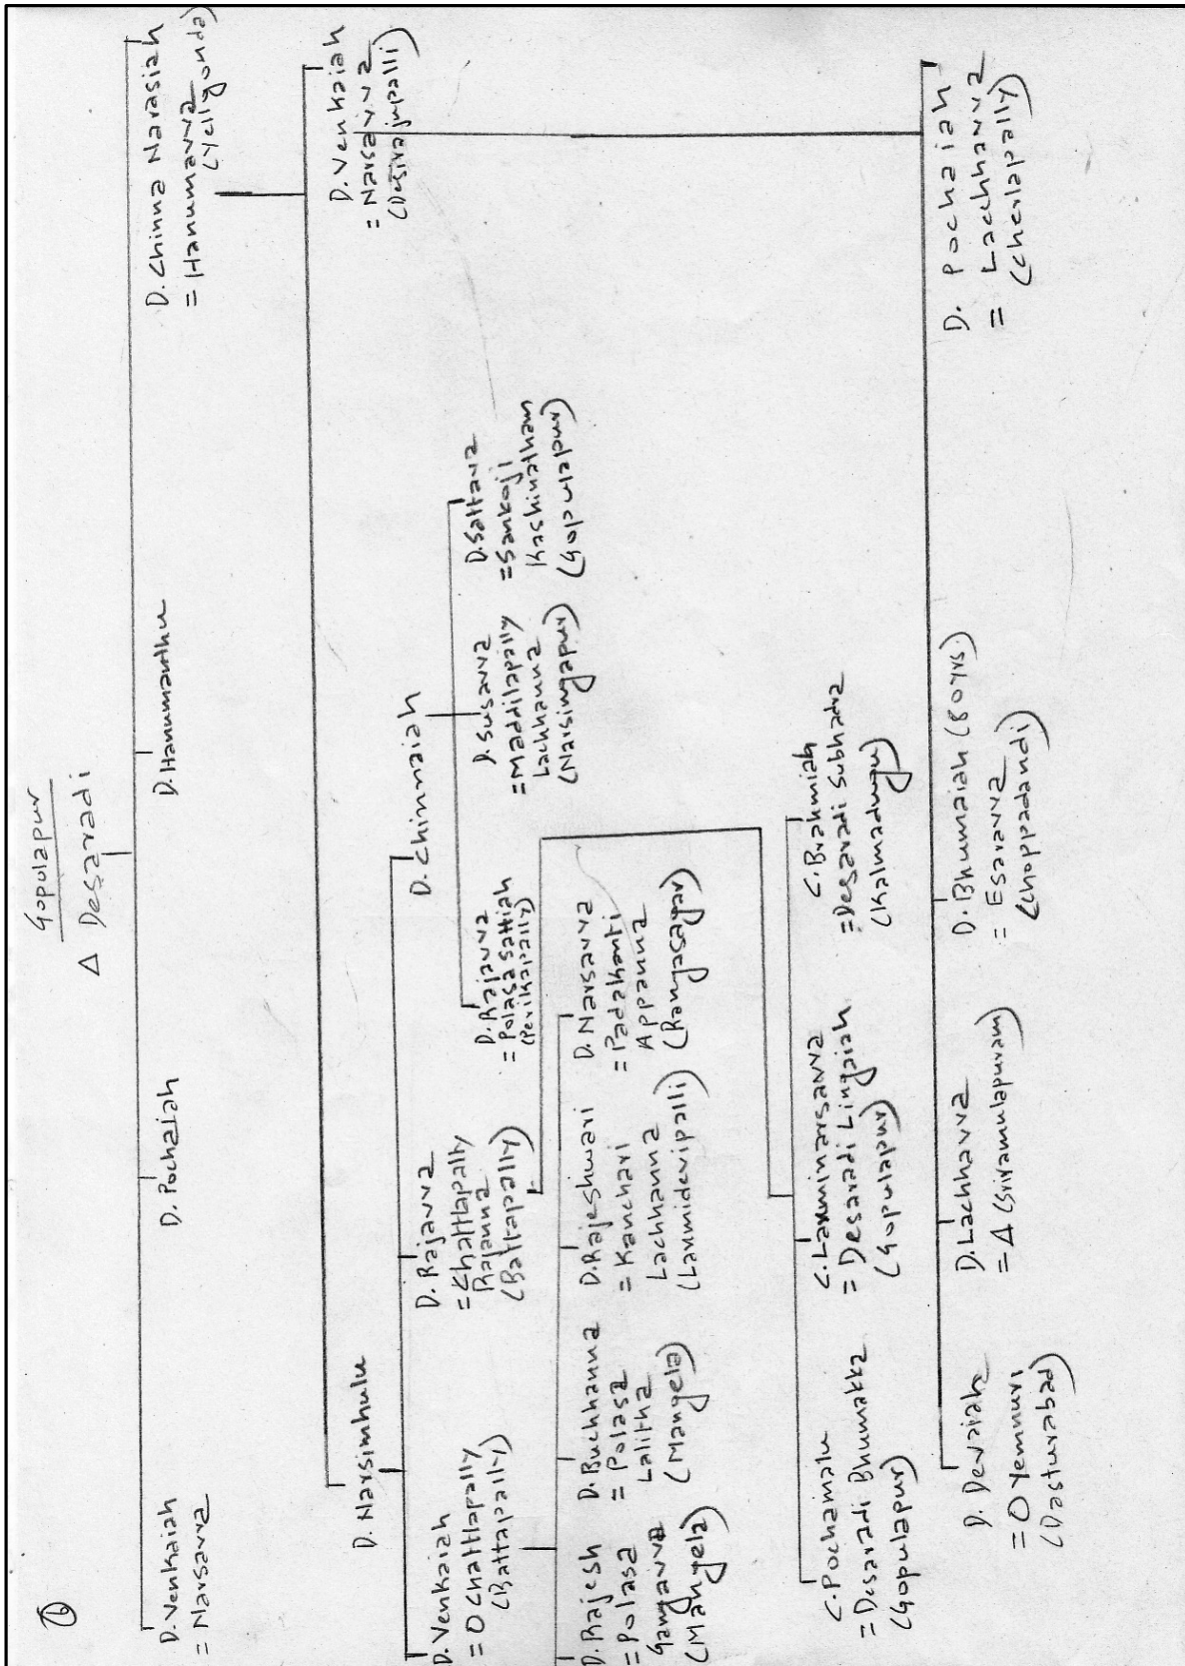 ①
Gopulapur
Δ Desaradi
D. Venkaiah
= Narsavva
D. Pochaiah
D. Hanumanthu
D. Chinna Narasiah
= Hanumavva
(Yellgonda)
D. Narsimhulu
D. Venkaiah
= Narsavva
(Desirajupalli)
D. Venkaiah
= O Chattlapally
(Battapally)
D. Rajavva
= Chattlapally
Rajanna
(Battapally)
D. Chinnaiah
D. Rajavva
= Polasa Sattiah
(Perikapally)
D. Susavva
= Maddilapally
Lachhanna
(Narsingapur)
D. Sattava
= Sankoji
Kashinatham
(Gopulapur)
D. Rajesh
= Polasa
Gangavva
(Mangela)
D. Buchhanna
= Polasa
Lalitha
(Mangela)
D. Rajeshwari
= Kanchari
Lachhanna
(Laxmidevipalli)
D. Narsavva
= Padakanti
Appanna
(Rangasagar)
C. Pochamalu
= Desaradi Bhumakka
(Gopulapur)
C. Laxminarsavva
= Desaradi Lingaiah
(Gopulapur)
C. Brahmiah
= Desaradi Subhadra
(Kalmadugu)
D. Devaiah
= O Yemnuri
(Dasturabad)
D. Lachhavva
= Δ (Sriramulapuram)
D. Bhumaiah (80 yrs.)
= Esaravva
(Choppadandi)
D. Pochaiah
= Lachhavva
(Cherlapally)